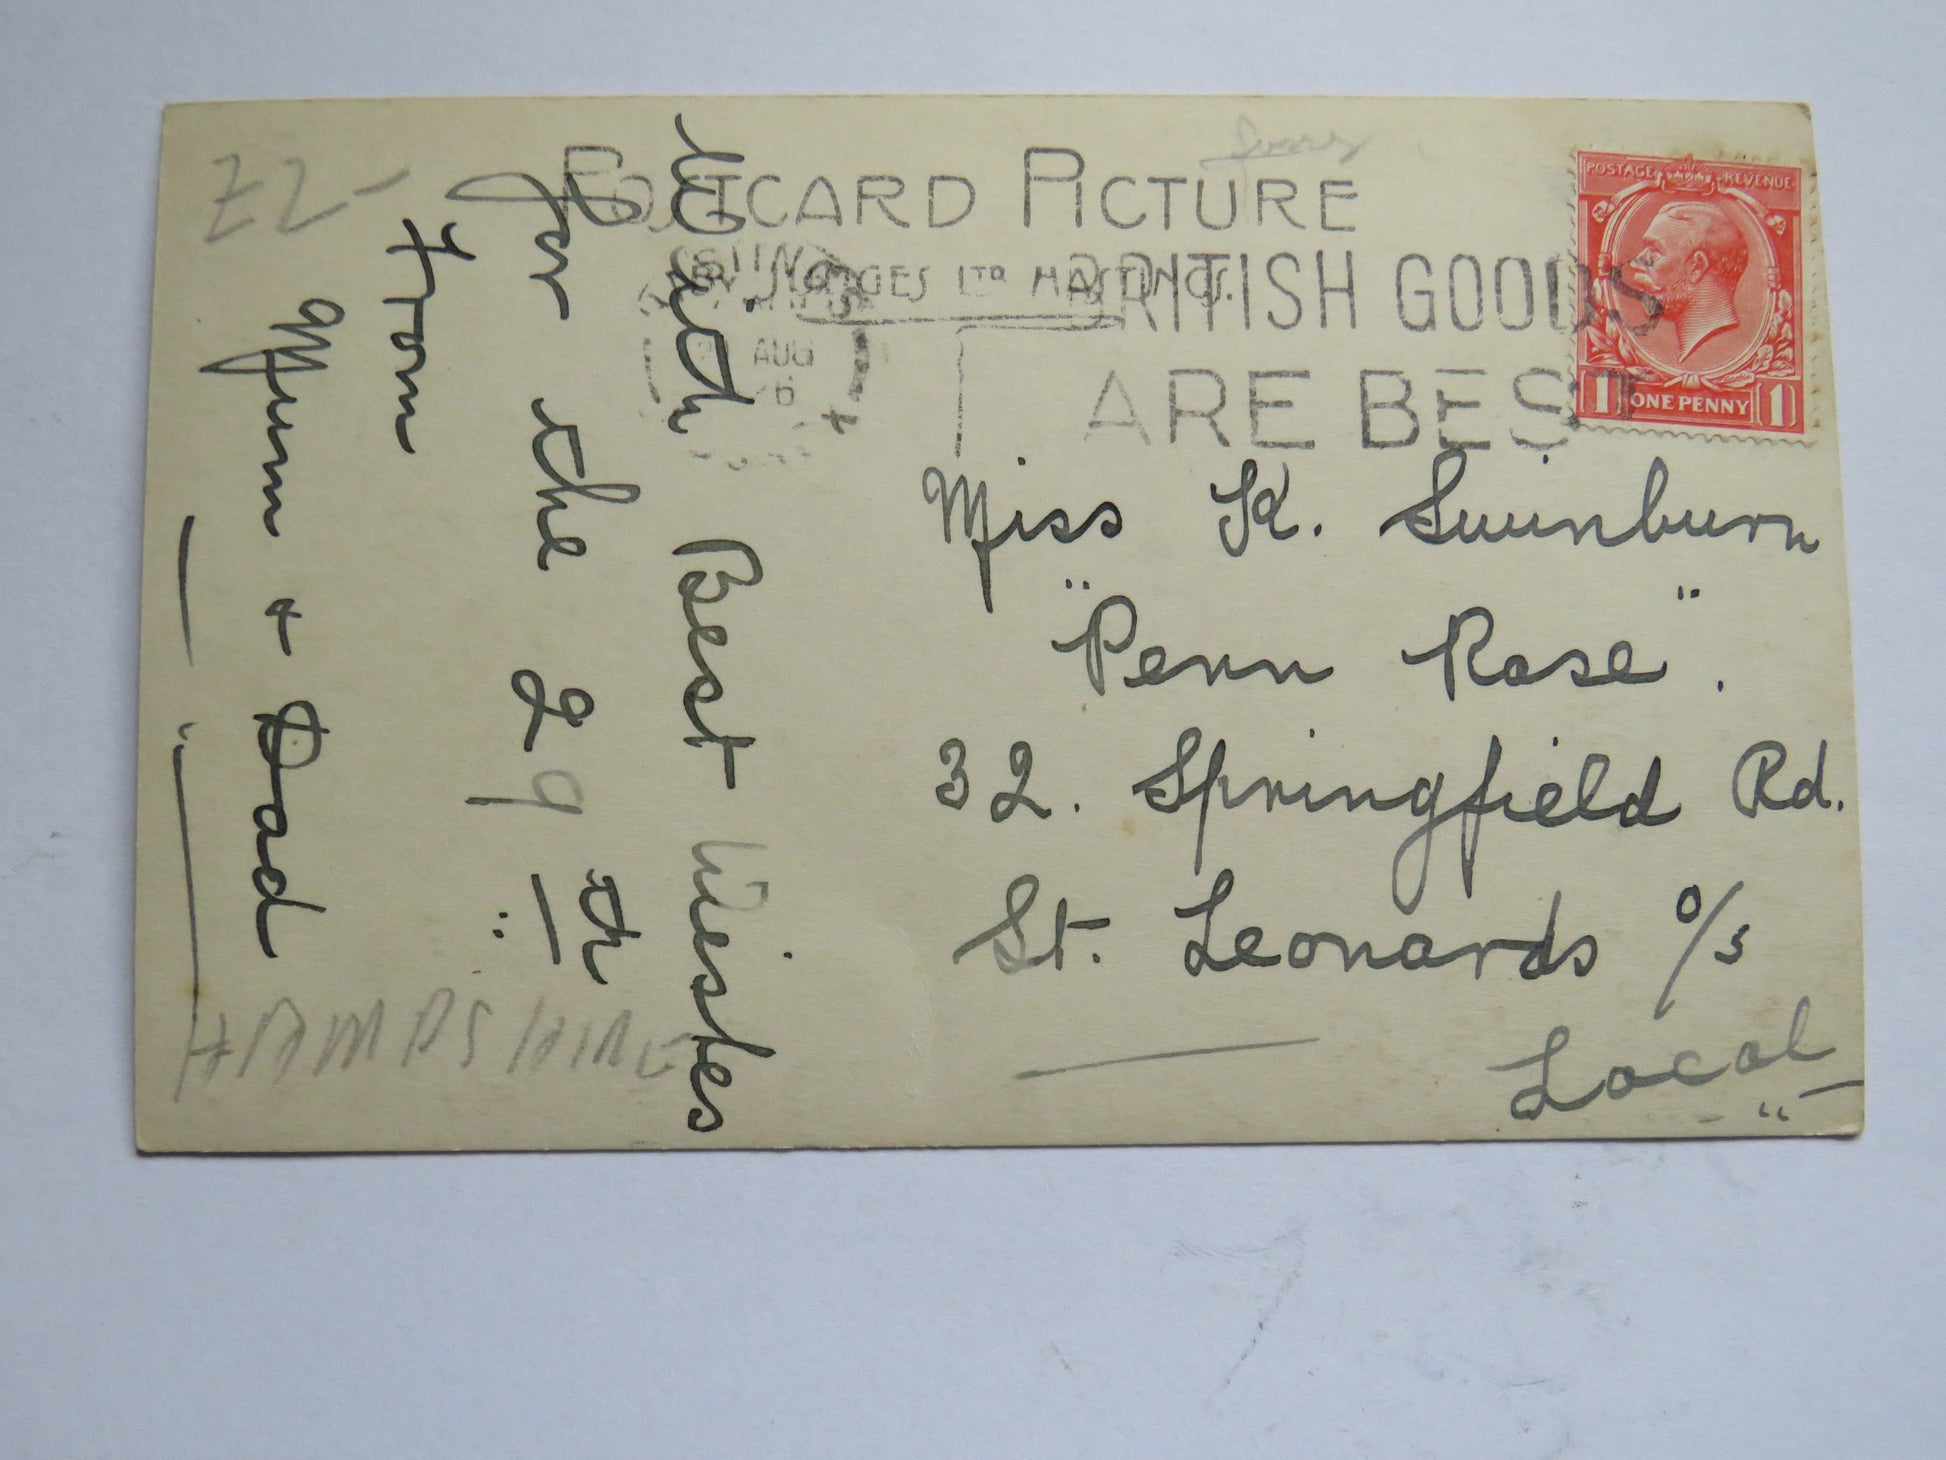 POSTCARD PICTURE
BY JUDGES LTD HASTINGS.
AUG
BRITISH GOODS
ARE BEST
POSTAGE REVENUE
1 ONE PENNY 1
With Best Wishes
for the 29th
From
Mum + Dad
Miss K. Swinburn
"Penn Rose".
32. Springfield Rd.
St. Leonards o/s
Local